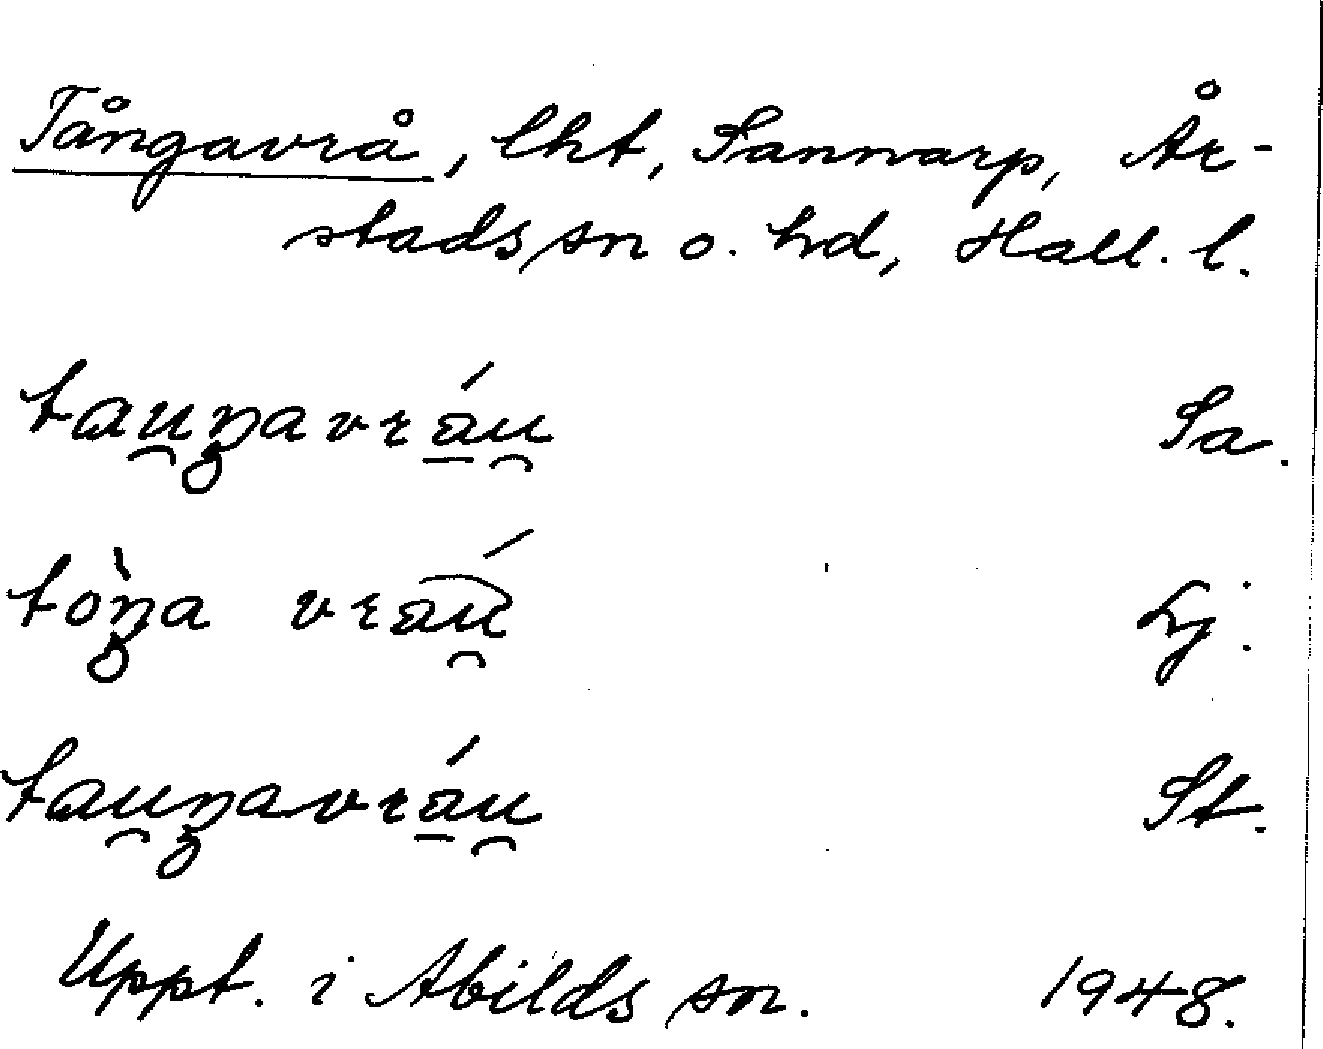 Tångavrå, lht, Sannarp, År-
stads sn o. hd, Hall. l.
tau̯ŋavrá̱u̯ Sa.
tòŋa vráu̯ Lj.
tau̯ŋavrá̱u̯ St.
Uppt. i Abilds sn. 1948.